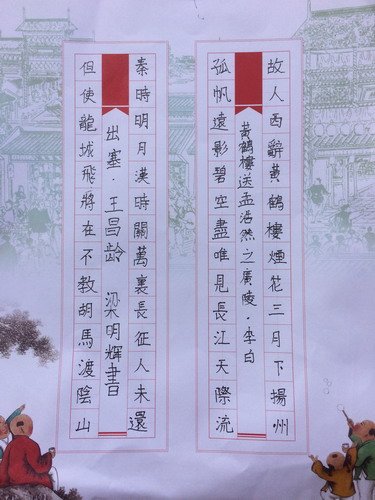 故人西辭黃鶴樓煙花三月下揚州
黃鶴樓送孟浩然之廣陵·李白
孤帆遠影碧空盡唯見長江天際流
秦時明月漢時關萬裏長征人未還
出塞·王昌龄 梁明輝書
但使龍城飛將在不教胡馬渡陰山